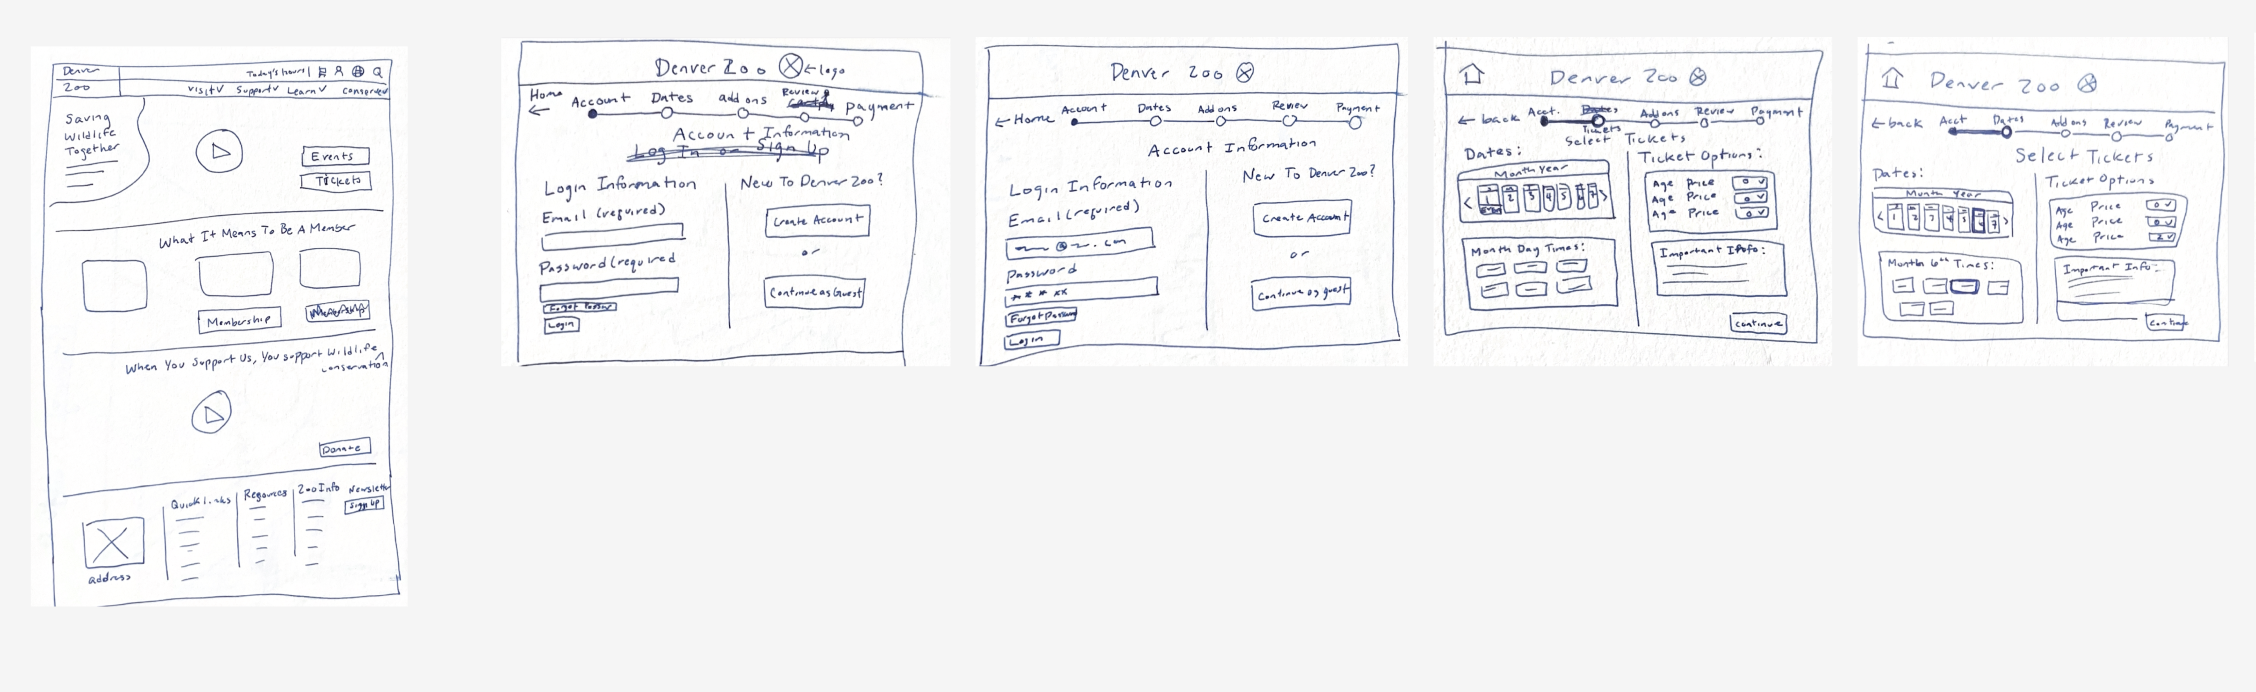 Denver
Zoo
Today's hours |
Visit v Support v Learn v Conserve v
Saving
Wildlife
Together
Events
Tickets
What It Means To Be A Member
Membership
When You Support Us, You support Wildlife
conservation
Donate
Quick Links
Zoo Info
Newsletter
Sign Up
address
Denver Zoo ← logo
Home
← Account Dates add ons Review payment
Account Information
Log In or Sign Up
Login Information
Email (required)
Password (required
Login
New To Denver Zoo?
Create Account
or
Continue as Guest
Denver Zoo
← Home Account Dates Add ons Review Payment
Account Information
Login Information
Email (required)
Password
* * * * *
Login
New To Denver Zoo?
Create Account
or
Continue as guest
Denver Zoo
← back Acct. Dates Add ons Review Payment
Tickets
Select Tickets
Dates:
Month Year
< 1 2 3 4 5 6 7 >
Month Day Times:
Ticket Options:
Age Price 0 v
Age Price 0 v
Age Price 0 v
Important Info:
Continue
Denver Zoo
← back Acct Dates Add ons Review Payment
Select Tickets
Dates:
Month Year
< 1 2 3 4 5 6 7 >
Month 6th Times:
Ticket Options
Age Price 0 v
Age Price 0 v
Age Price 2 v
Important Info: